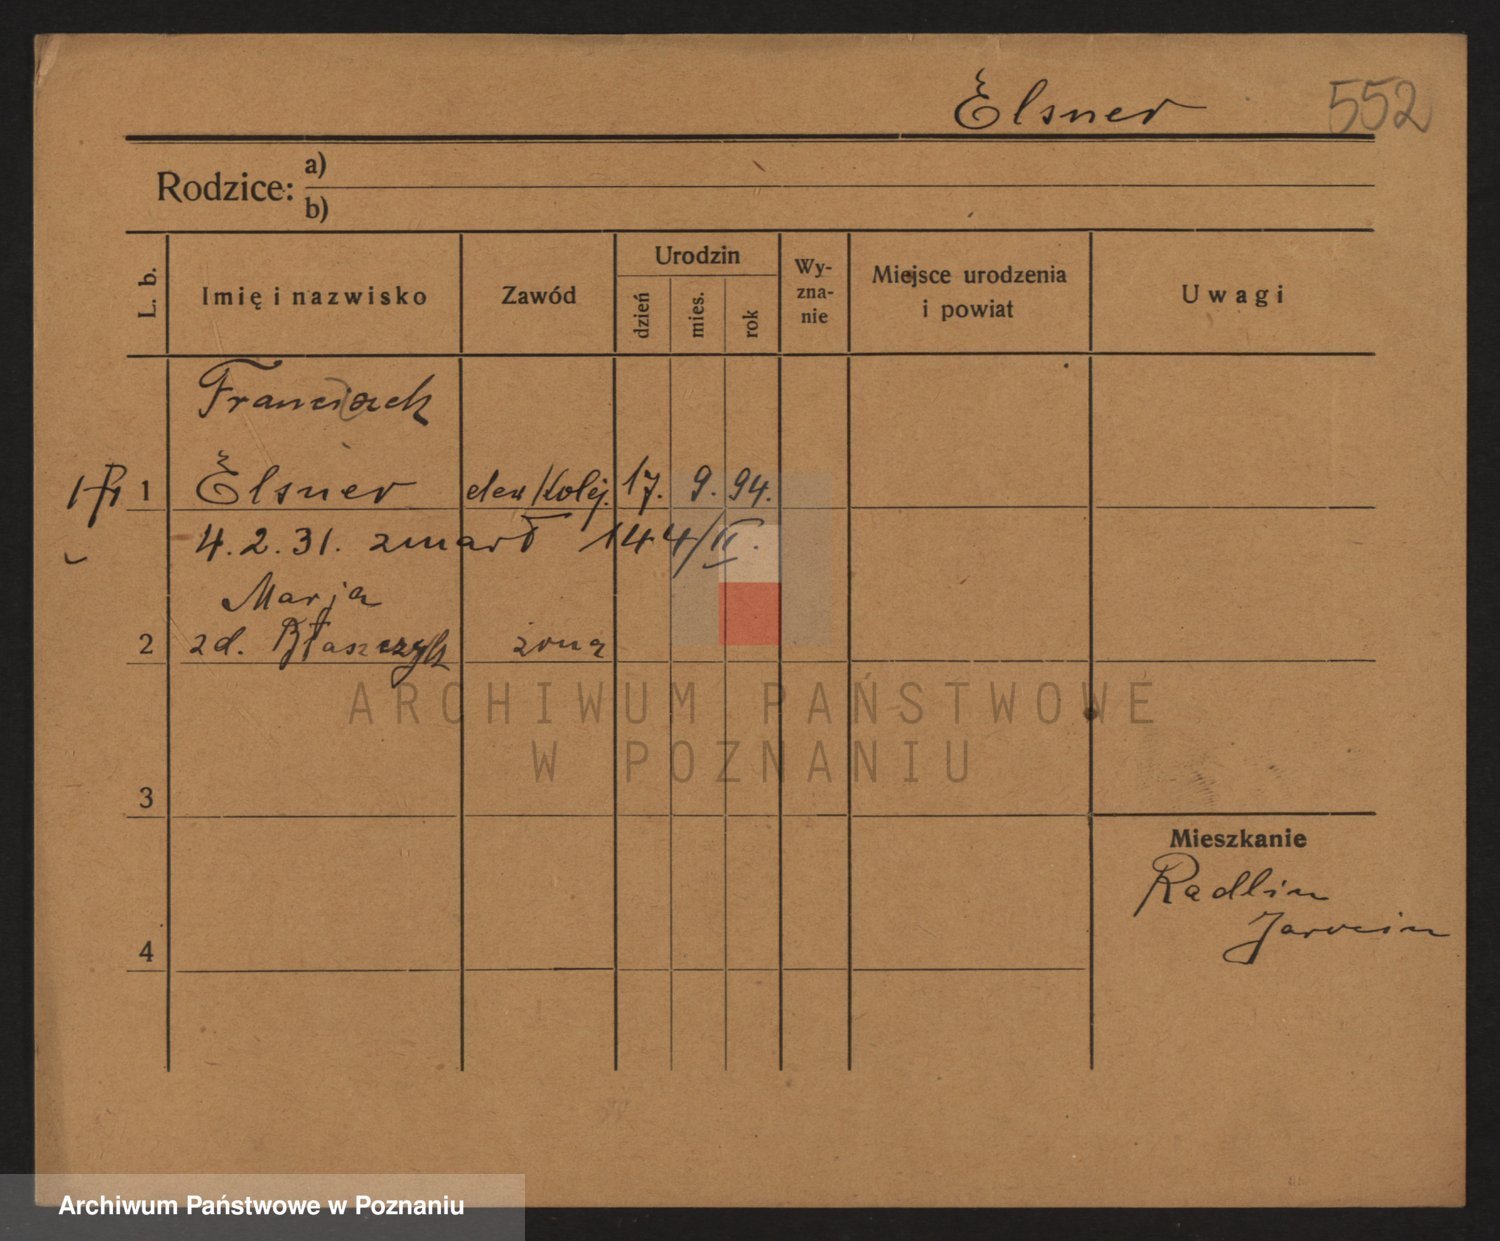 Elsner 552
Rodzice: a)
b)
L. b. Imię i nazwisko Zawód Urodzin dzień mies. rok Wy-zna-nie Miejsce urodzenia i powiat Uwagi
Franciszek
1 Elsner Kolej. 17. 9. 94.
4.2.31. zmarł 144/II.
Marja
2 zd. Błaszczyk żona
ARCHIWUM PAŃSTWOWE
W POZNANIU
3
Mieszkanie
Radlin
Jarocin
4
Archiwum Państwowe w Poznaniu